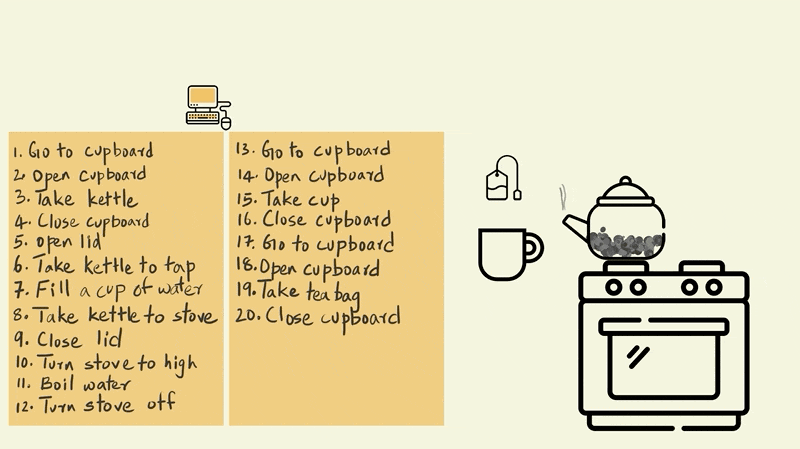 1. Go to cupboard
2. Open cupboard
3. Take kettle
4. Close cupboard
5. Open lid
6. Take kettle to tap
7. Fill a cup of water
8. Take kettle to stove
9. Close lid
10. Turn stove to high
11. Boil water
12. Turn stove off
13. Go to cupboard
14. Open cupboard
15. Take cup
16. Close cupboard
17. Go to cupboard
18. Open cupboard
19. Take tea bag
20. Close cupboard